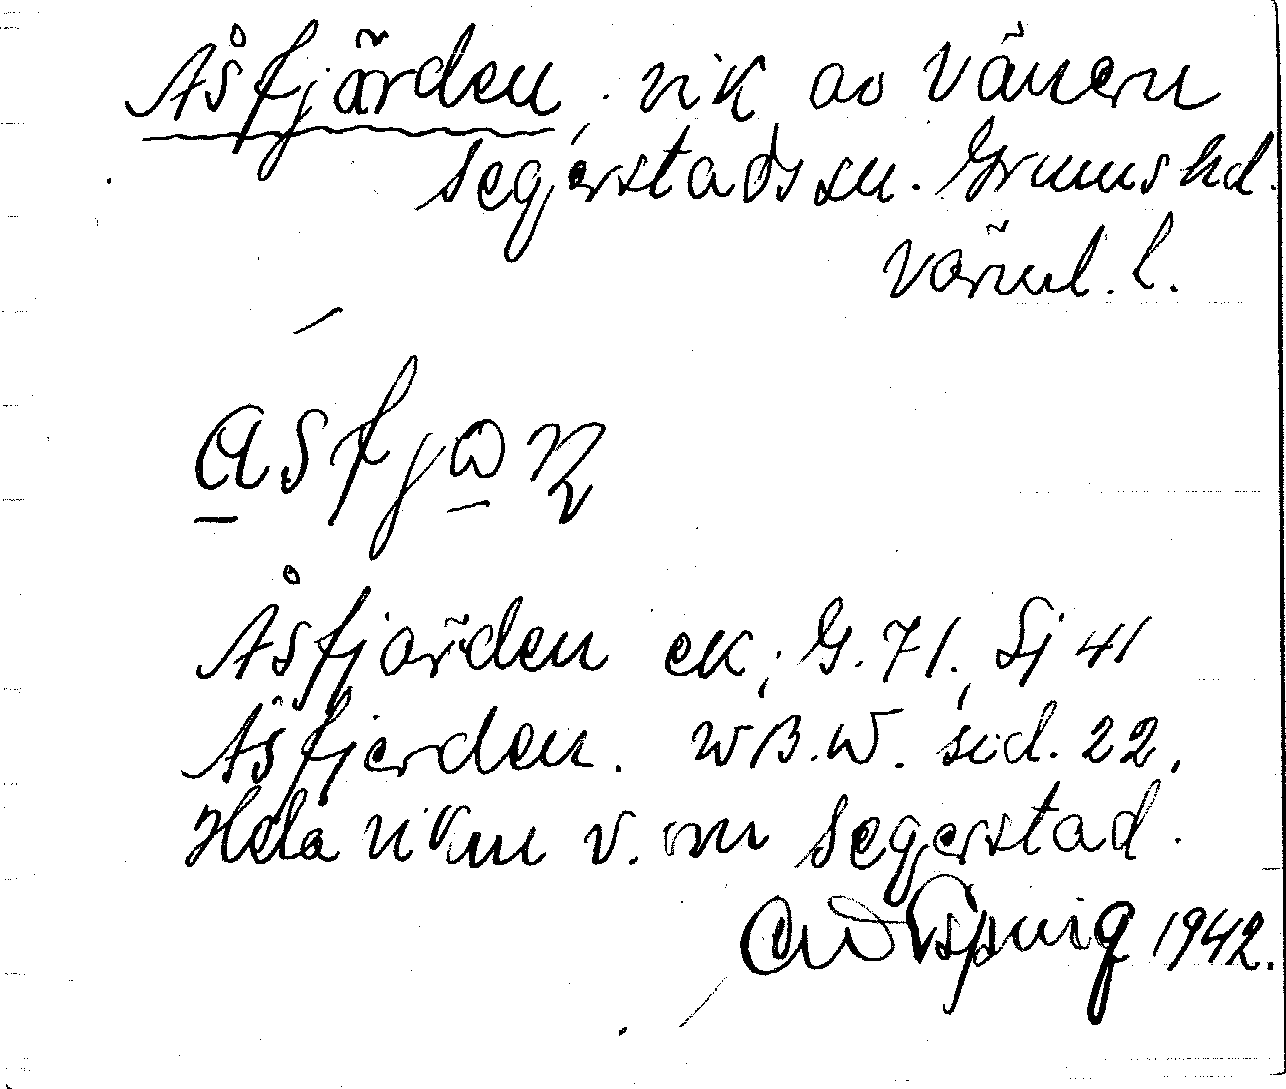 Åsfjärden, vik av Vänern
Segerstads sn. Grums hd.
Värml. l.
Åsfjärden ek; G. 71, Sj 41
Åsfjerden. WB.W. sid. 22.
Hela viken v. om Segerstad.
1942.